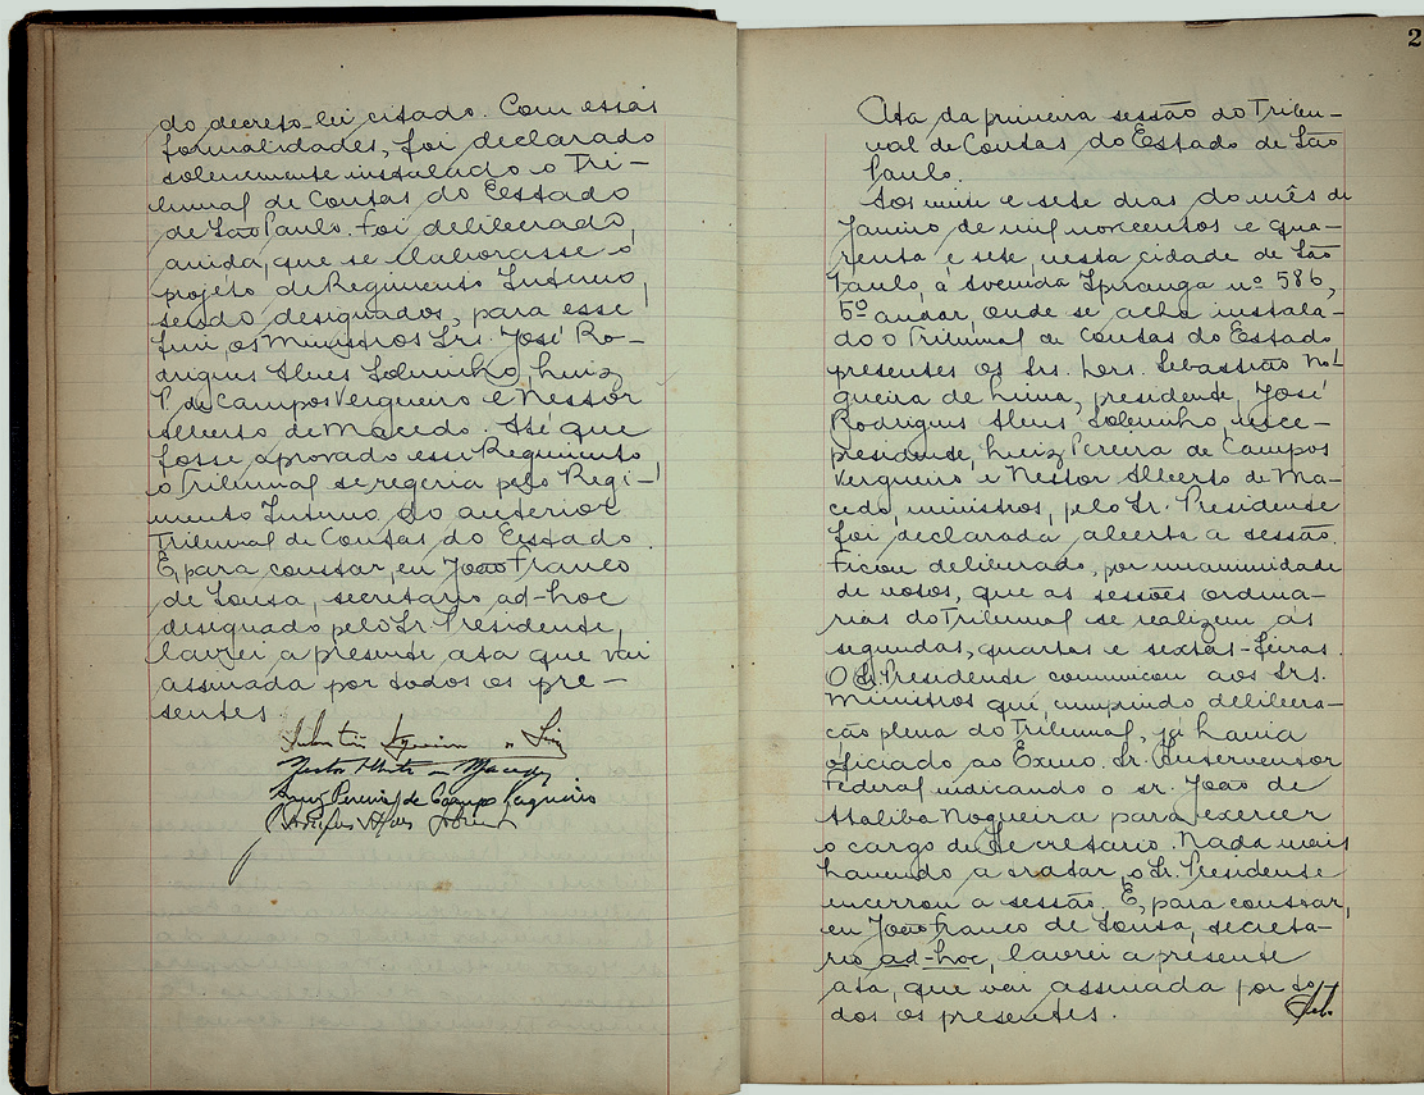 do decreto-lei citado. Com essas
formalidades, foi declarado
solenemente instalado o Tri-
bunal de Contas do Estado
de São Paulo. Foi deliberado,
ainda, que se elaborasse o
projéto de Regimento Interno,
sendo designados, para esse
fim, os Ministros Srs. José Ro-
drigues Alves Sobrinho, Luiz
P. de Campos Vergueiro e Nestor
Alberto de Macedo. Até que
fosse aprovado esse Regimento,
o Tribunal se regeria pelo Regi-
mento Interno do anterior
Tribunal de Contas do Estado.
E, para constar, eu João Franco
de Sousa, secretario ad-hoc
designado pelo Sr. Presidente,
lavrei a presente ata que vai
assinada por todos os pre-
sentes.
Nestor Alberto de Macedo
Luiz Pereira de Campos Vergueiro
Rodrigues Alves Sobrinho
2
Ata da primeira sessão do Tribu-
nal de Contas do Estado de São
Paulo.
Aos vinte e sete dias do mês de
Janeiro de mil novecentos e qua-
renta e sete, nesta cidade de São
Paulo, á Avenida Ipiranga nº 586,
5º andar, onde se acha instala-
do o Tribunal de Contas do Estado,
presentes os Srs. Drs. Sebastião No-
gueira de Lima, presidente, José
Rodrigues Alves Sobrinho, vice-
presidente, Luiz Pereira de Campos
Vergueiro e Nestor Alberto de Ma-
cedo, ministros, pelo Sr. Presidente
foi declarada aberta a sessão.
Ficou deliberado, por unanimidade
de votos, que as sessões ordina-
rias do Tribunal se realizem ás
segundas, quartas e sextas-feiras.
O Sr. Presidente comunicou aos Srs.
Ministros que, cumprindo delibera-
ção plena do Tribunal, já havia
oficiado ao Exmo. Sr. Interventor
Federal indicando o sr. João de
Ataliba Nogueira para exercer
o cargo de Secretario. Nada mais
havendo a tratar, o Sr. Presidente
encerrou a sessão. E, para constar,
eu João Franco de Sousa, secreta-
rio ad-hoc, lavrei a presente
ata, que vai assinada por to-
dos os presentes.